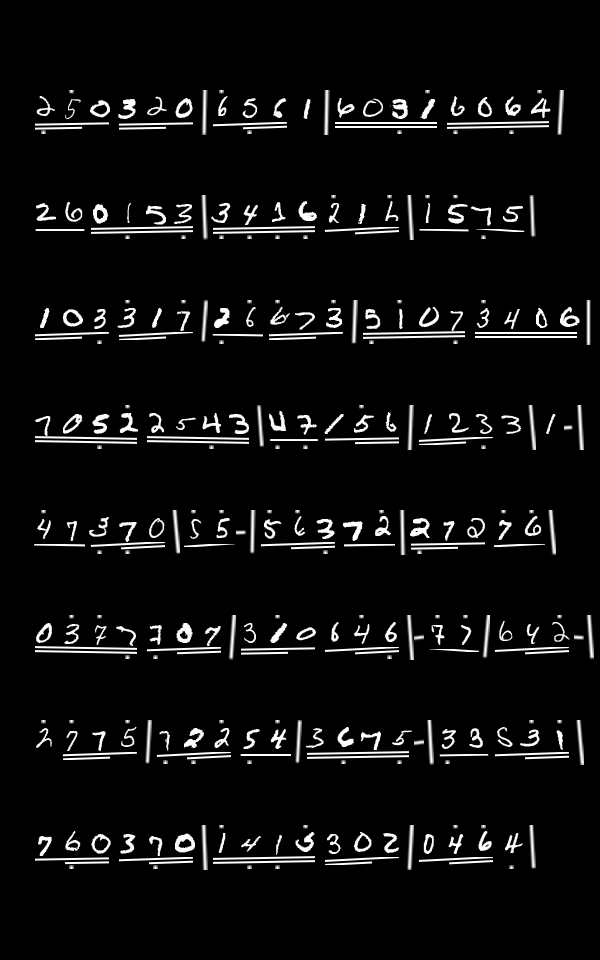 250320|6561|60316064
260153|3416212|1575
103317|26673|51073406
70522543|47156|1233|1-
47370|55-|56372|27276
0377707|310646|-77|642-
2775|72254|3675-|33531
760370|1415302|0464